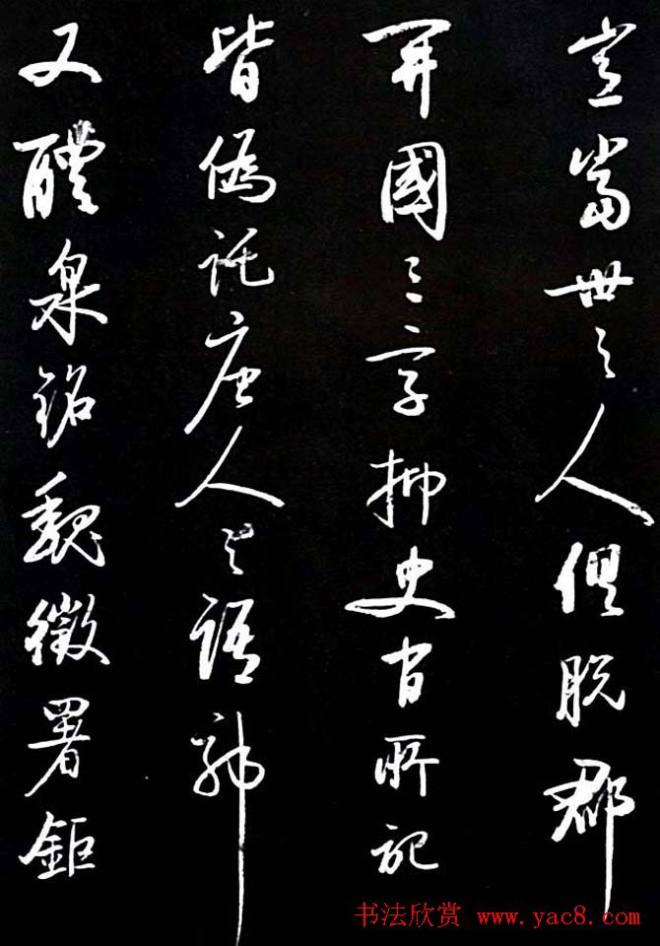 豈當世之人俱脫郡
開國三字抑史官所記
皆偽託唐人之語耶
又醴泉銘魏徵署鉅
书法欣赏 www.yac8.com